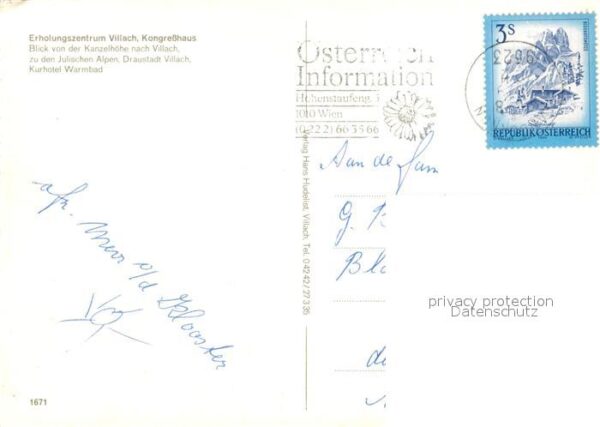 Erholungszentrum Villach, Kongreßhaus
Blick von der Kanzelhöhe nach Villach,
zu den Julischen Alpen, Draustadt Villach,
Kurhotel Warmbad
Österreich
Information
Hohenstaufeng. 3
1010 Wien
(0222) 663566
3S
REPUBLIK ÖSTERREICH
Verlag Hans Hudelist, Villach, Tel. 04242/27335
Aan de Fam
G.
Bl
de
afz. Mevr v/d Klooster
privacy protection
Datenschutz
1671